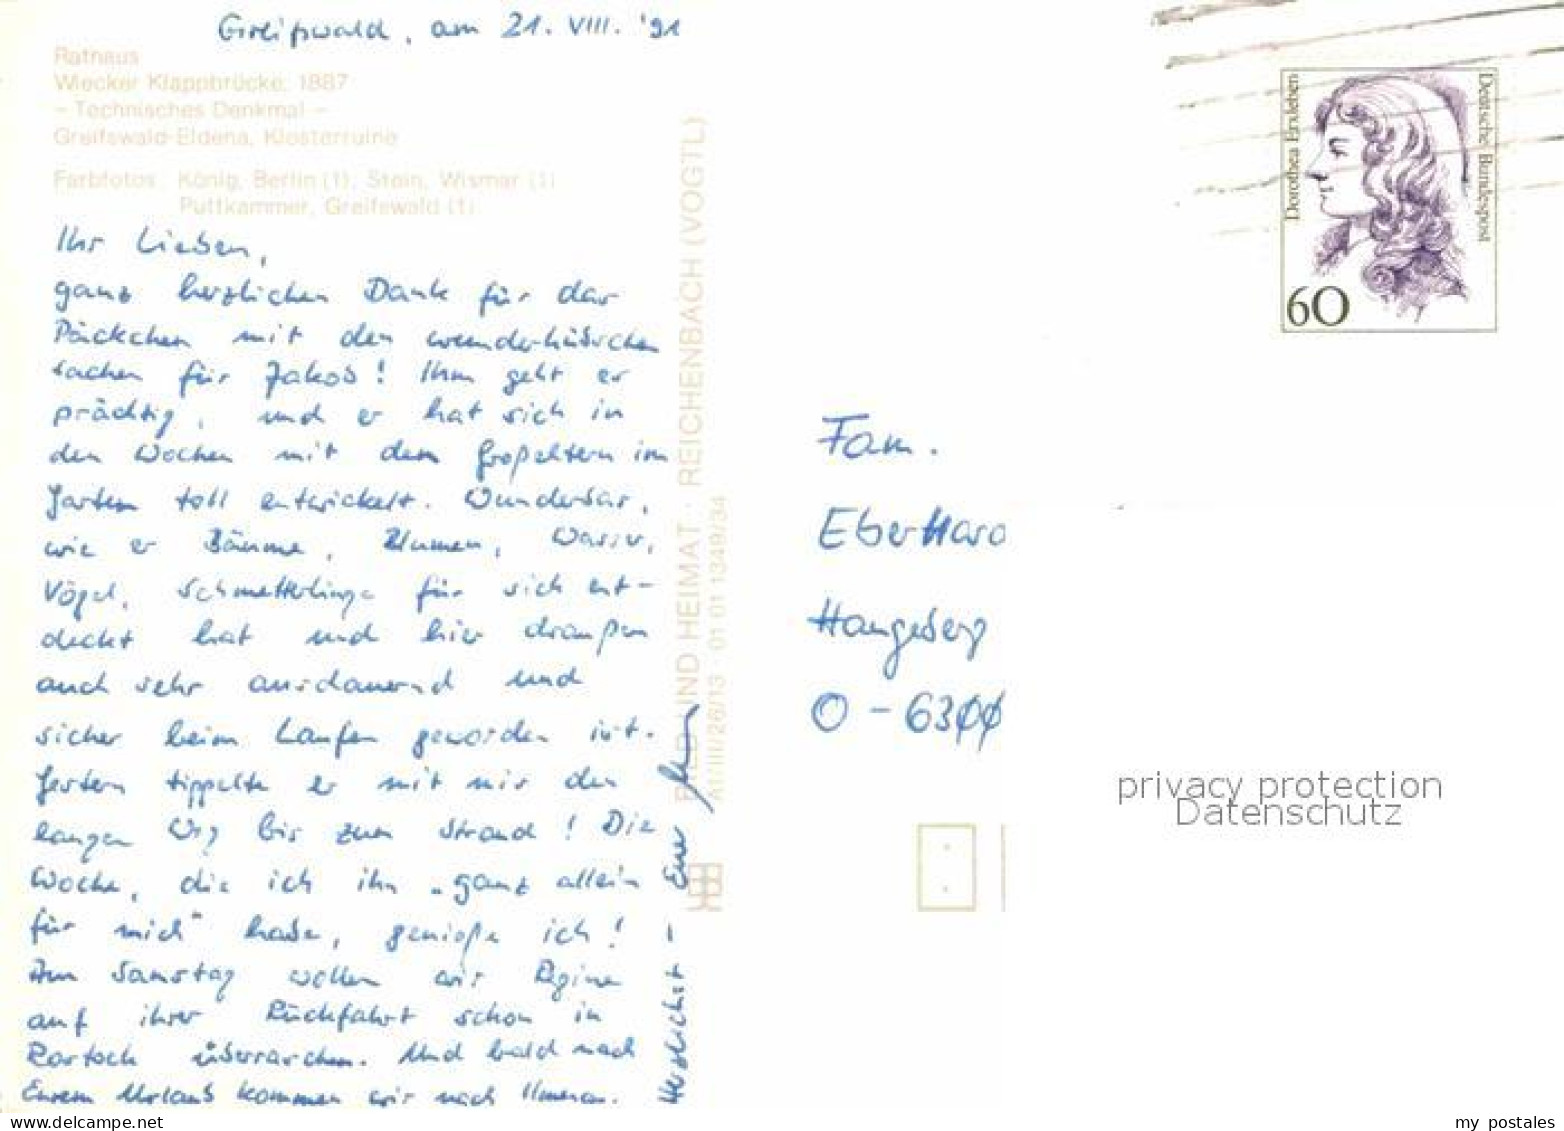 Greifswald, am 21. VIII. '91
Rathaus
Wiecker Klappbrücke, 1887
– Technisches Denkmal –
Greifswald-Eldena, Klosterruine
Farbfotos: König, Berlin (1), Stein, Wismar (1)
Puttkammer, Greifswald (1)
Ihr Lieben,
ganz herzlichen Dank für das
Päckchen mit den wunderhübschen
Sachen für Jakob! Ihm geht es
prächtig, und er hat sich in
den Wochen mit den Großeltern im
Garten toll entwickelt. Wunderbar,
wie er Bäume, Blumen, Wasser,
Vögel, Schmetterlinge für sich ent-
deckt hat und hier draußen
auch sehr ausdauernd und
sicher beim Laufen geworden ist.
Gestern tippelte er mit mir den
langen Weg bis zum Strand! Die
Woche, die ich ihn „ganz allein
für mich" habe, genieße ich!
Am Samstag wollen wir Regine
auf ihrer Rückfahrt schon in
Rostock überraschen. Und bald nach
Eurem Urlaub kommen wir nach Ilmenau.
Herzlichst – Euer
BILD UND HEIMAT · REICHENBACH (VOGTL)
A1/III/26/13 · 01 01 1349/34
Dorothea Erxleben
Deutsche Bundespost
60
Fam.
Eberhard
Hangeberg
O - 6300
privacy protection
Datenschutz
my postales